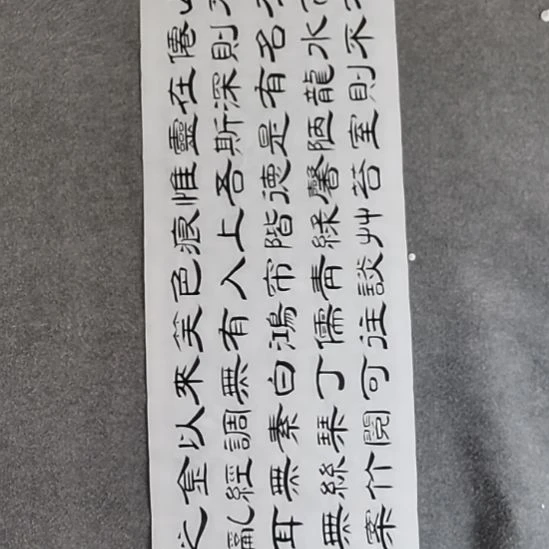 僊則名水不
在深有龍則
靈斯是陋室
惟吾德馨苔
痕上階綠艸
色入帘青談
笑有鴻儒往
來無白丁可
以調素琴閱
金經無絲竹
之亂耳無案